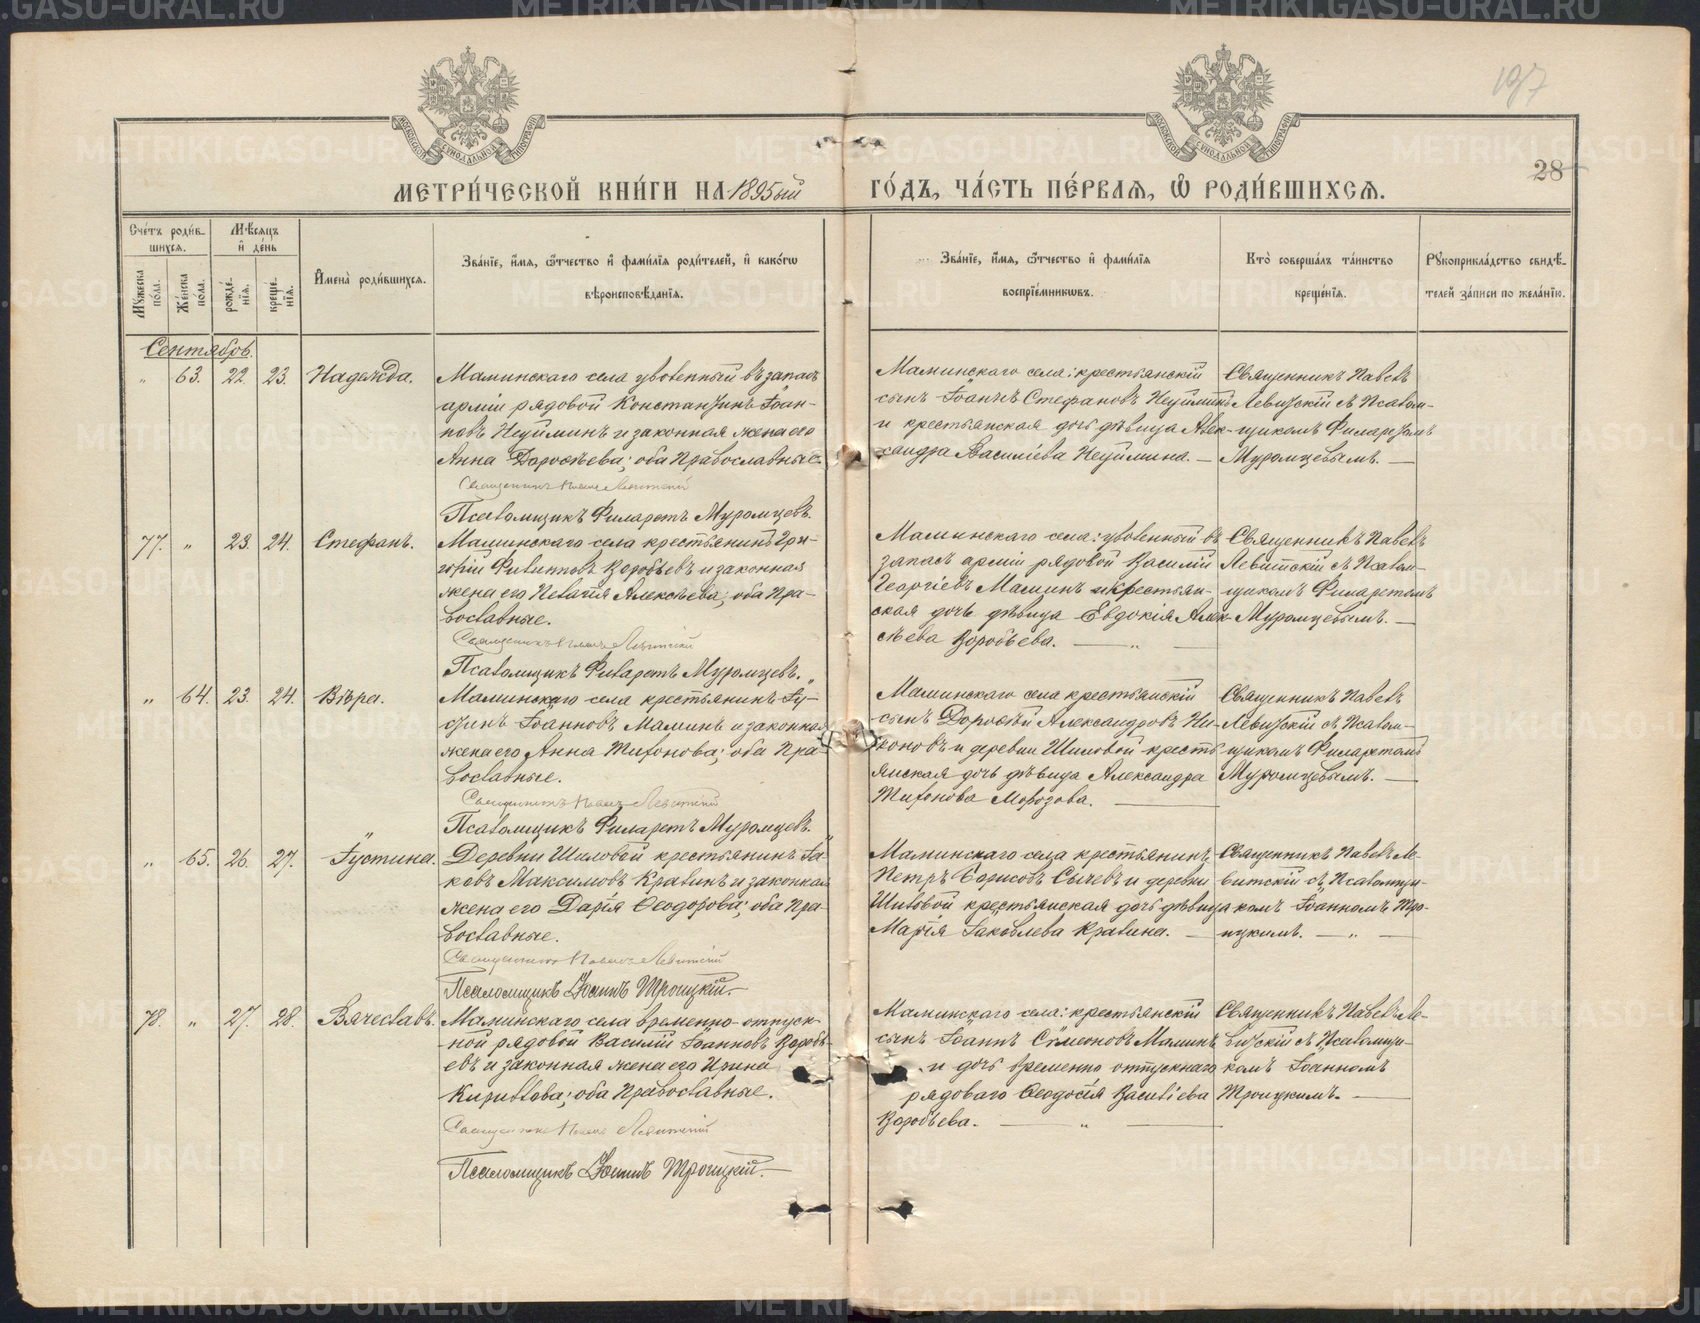 197
28
МОСКОВСКОЙ СѴНОДАЛЬНОЙ ТИПОГРАФІИ
МОСКОВСКОЙ СѴНОДАЛЬНОЙ ТИПОГРАФІИ
МЕТРИ́ЧЕСКОЙ КНИ́ГИ НА 1895ый ГО́ДЪ, ЧА́СТЬ ПЕ́РВАѦ, Ѿ РОДИ́ВШИХСѦ.
Сче́тъ роди́в-
шихсѧ.
Мꙋ́жеска по́ла.
Же́нска по́ла.
Мѣ́сѧцъ
и҆ де́нь
рожде́-
нїѧ.
креще́-
нїѧ.
И҆мена̀ роди́вшихсѧ.
Зва́нїе, и҆́мѧ, ѻ҆́тчество и҆ фами́лїѧ роди́телей, и҆ како́гѡ
вѣроисповѣ́данїѧ.
Зва́нїе, и҆́мѧ, ѻ҆́тчество и҆ фами́лїѧ
воспрїе́мникѡвъ.
Кто̀ соверша́лъ та́инство
креще́нїѧ.
Рꙋкоприкла́дство свидѣ́-
телей за́писи по жела́нїю.
Сентябрь.
„ 63. 22. 23. Надежда.
Маминскаго села уволенный въ запасъ
арміи рядовой Константинъ Іоан-
новъ Неуйминъ и законная жена его
Анна Дороѳеева; оба Православные.
Священникъ Павелъ Левитскій
Псаломщикъ Филаретъ Муромцевъ.
Маминскаго села: крестьянскій
сынъ Іоаннъ Стефановъ Неуйминъ
и крестьянская дочь дѣвица Алек-
сандра Васильева Неуймина. —
Священникъ Павелъ
Левитскій съ Псалом-
щикомъ Филаретомъ
Муромцевымъ. —
77. „ 23. 24. Стефанъ.
Маминскаго села крестьянинъ Гри-
горій Филипповъ Воробьевъ и законная
жена его Пелагія Алексѣева; оба Пра-
вославные.
Священникъ Павелъ Левитскій
Псаломщикъ Филаретъ Муромцевъ.
Маминскаго села: уволенный въ
запасъ арміи рядовой Василій
Георгіевъ Маминъ и крестьян-
ская дочь дѣвица Евдокія Алек-
сѣева Воробьева. — „ —
Священникъ Павелъ
Левитскій съ Псалом-
щикомъ Филаретомъ
Муромцевымъ. —
„ 64. 23. 24. Вѣра.
Маминскаго села крестьянинъ Іу-
стинъ Іоанновъ Маминъ и законная
жена его Анна Тихонова; оба Пра-
вославные.
Священникъ Павелъ Левитскій
Псаломщикъ Филаретъ Муромцевъ.
Маминскаго села крестьянскій
сынъ Дороѳей Александровъ Ни-
коновъ и деревни Шиловой кресть-
янская дочь дѣвица Александра
Тихонова Морозова. —
Священникъ Павелъ
Левитскій съ Псалом-
щикомъ Филаретомъ
Муромцевымъ. —
„ 65. 26. 27. Іустина.
Деревни Шиловой крестьянинъ Іа-
ковъ Максимовъ Кралинъ и законная
жена его Дарія Ѳеодорова; оба Пра-
вославные.
Священникъ Павелъ Левитскій
Псаломщикъ Іоаннъ Троицкій.
Маминскаго села крестьянинъ
Петръ Борисовъ Сычевъ и деревни
Шиловой крестьянская дочь дѣвица
Марія Іаковлева Кралина. —
Священникъ Павелъ Ле-
витскій съ Псаломщи-
комъ Іоанномъ Тро-
ицкимъ. — „ —
78. „ 27. 28. Вячеславъ.
Маминскаго села временно-отпуск-
ной рядовой Василій Іоанновъ Воробь-
евъ и законная жена его Ирина
Кириллова; оба Православные.
Священникъ Павелъ Левитскій
Псаломщикъ Іоаннъ Троицкій.
Маминскаго села: крестьянскій
сынъ Іоаннъ Сѵмеоновъ Маминъ
и дочь временно отпускнаго
рядоваго Ѳеодосія Василіева
Воробьева. — „ —
Священникъ Павелъ Ле-
витскій съ Псаломщи-
комъ Іоанномъ
Троицкимъ. —
METRIKI.GASO-URAL.RU